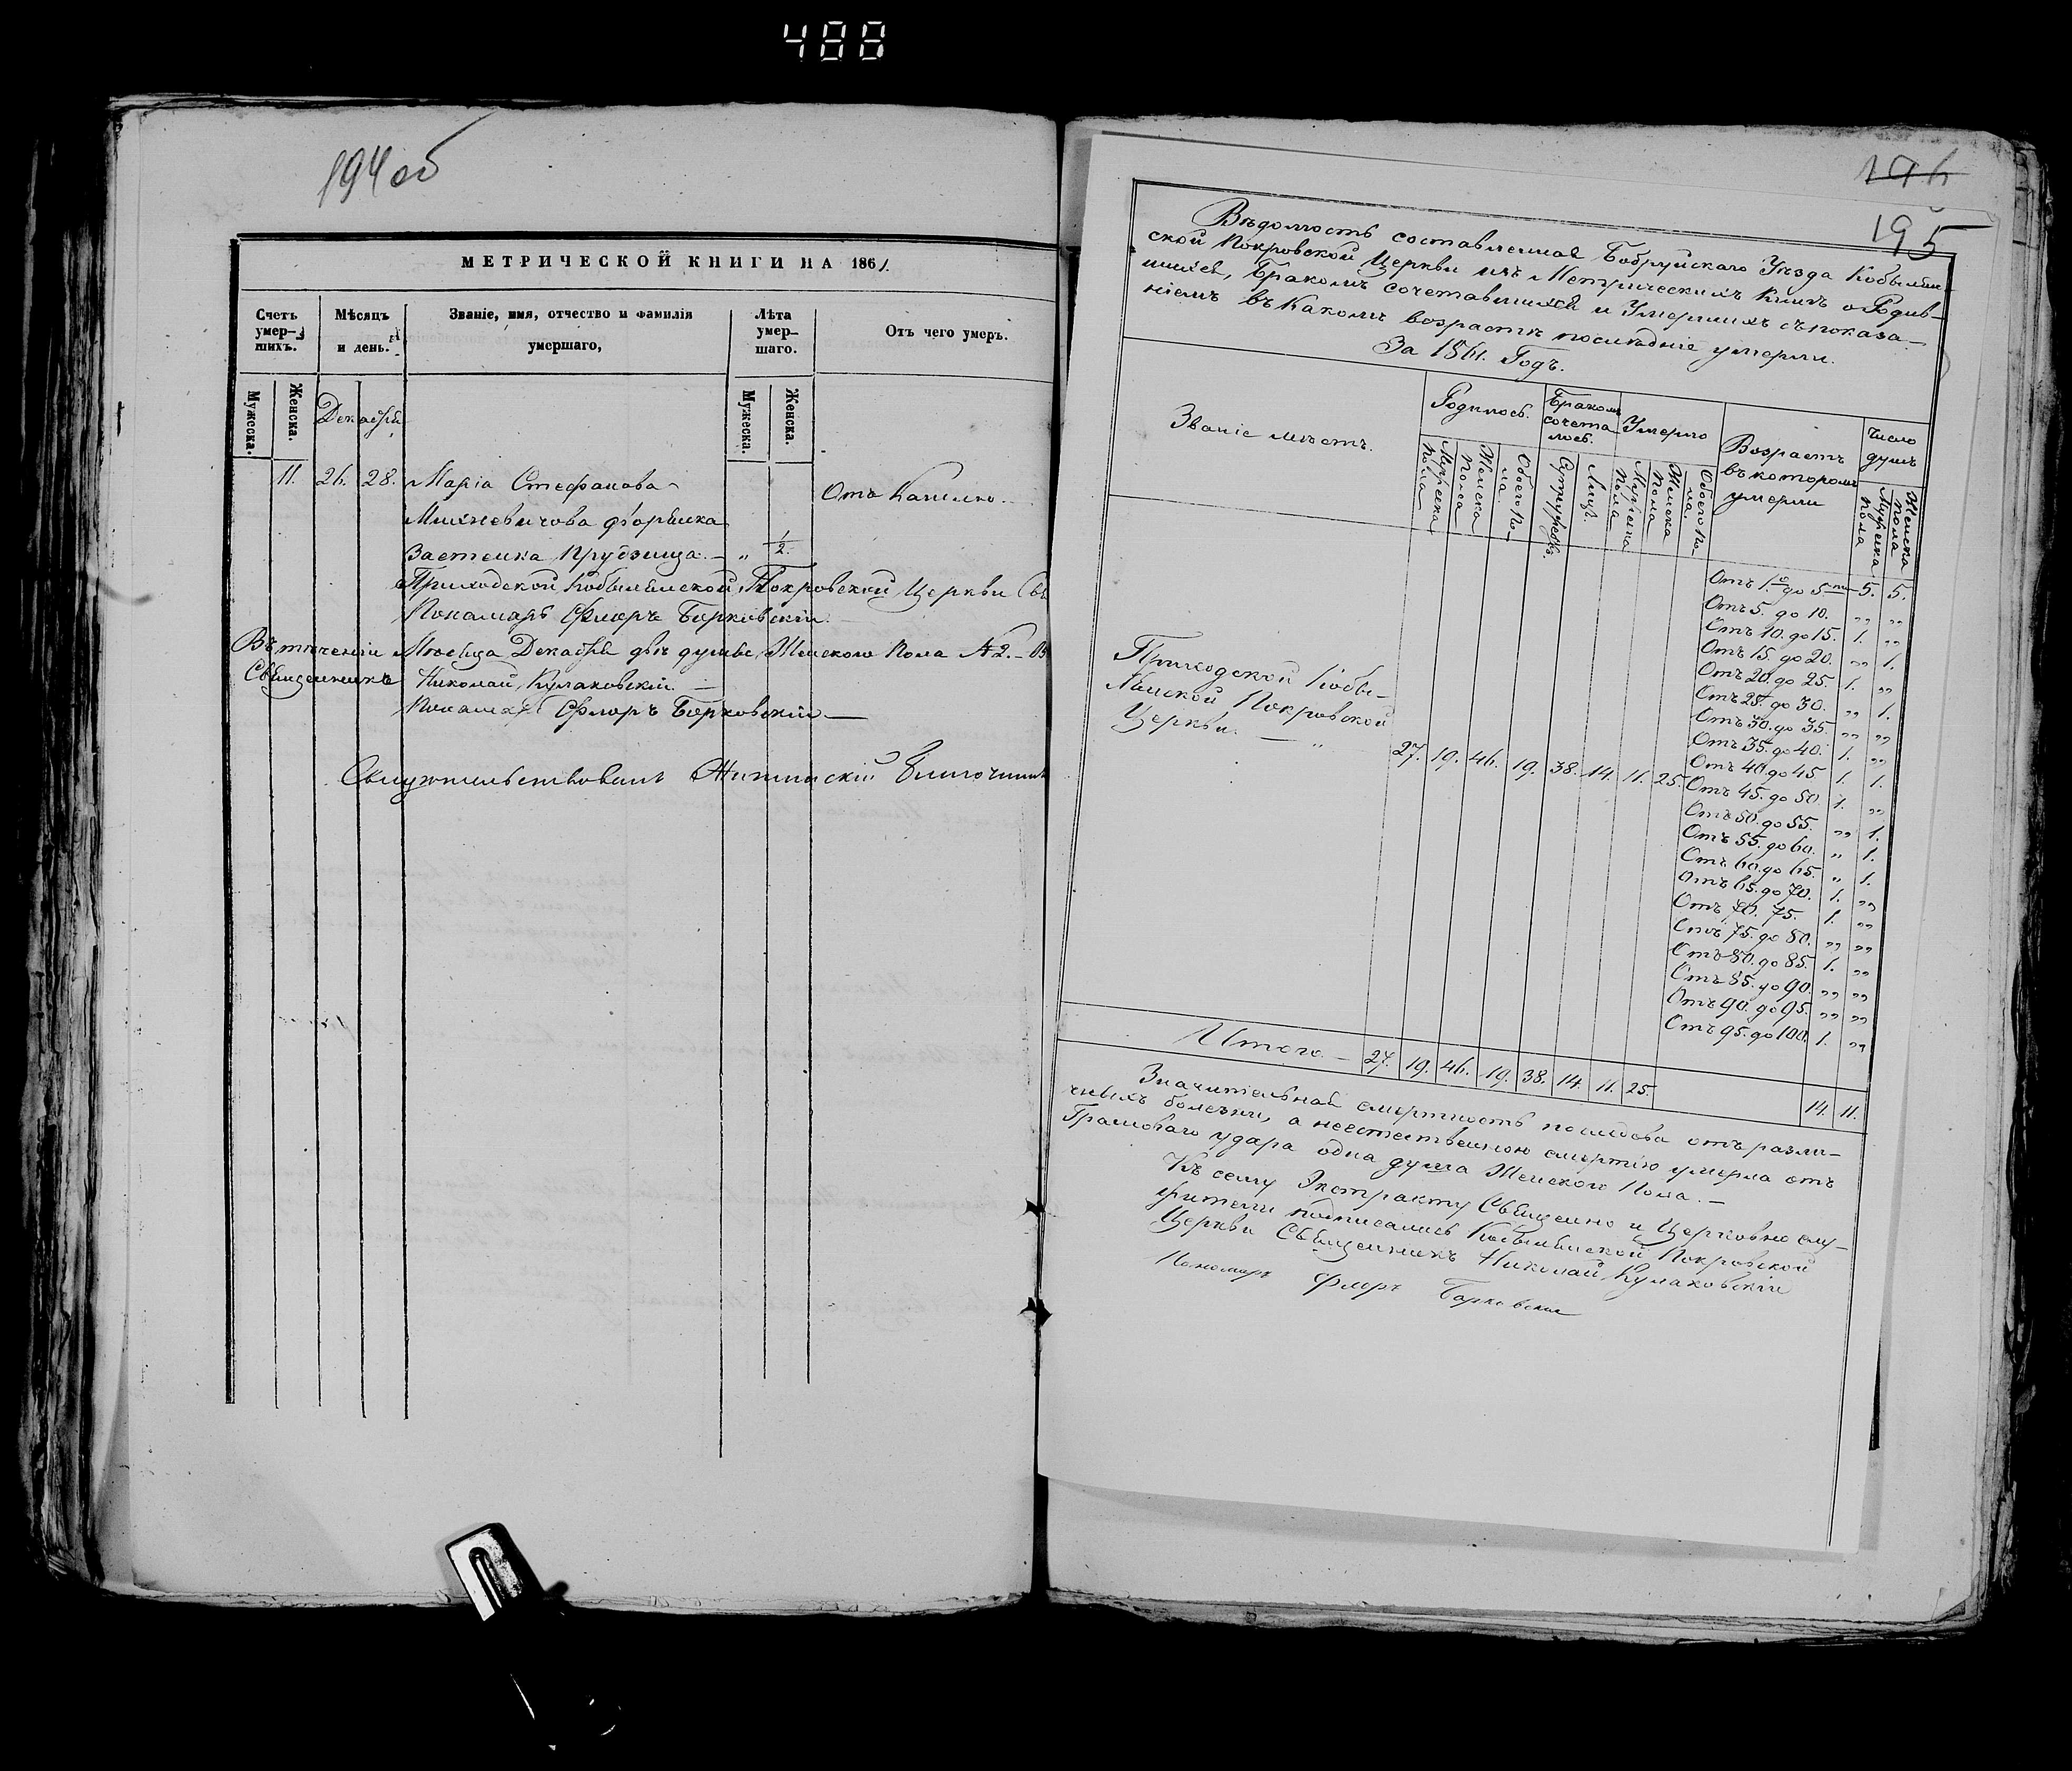 488
194 об
МЕТРИЧЕСКОЙ КНИГИ НА 1861.
Счетъ умер-шихъ.
Мѣсяцъ и день.
Званіе, имя, отчество и фамилія умершаго,
Лѣта умер-шаго.
Отъ чего умеръ.
Мужеска.
Женска.
Декабря
Мужеска.
Женска.
11. 26. 28. Марія Стефанова
Отъ Кашлю.
Михневичова дворянка
Застенка Прудзища. „ 1/2.
Приходской Кобылянской Покровской Церкви Свя
Пономарь Флоръ Барковскій.
Въ теченіи Мѣсяца Декабря двѣ души Женского Пола № 2.
Священникъ Николай Кулаковскій.
Пономарь Флоръ Барковскій
Свидѣтельствовалъ
196
195
Вѣдомость составленная Бобруйскаго Уѣзда Кобылян-
ской Покровской Церкви изъ Метрическихъ Книгъ о Родив-
шихся, Бракомъ сочетавшихся и Умершихъ съ показа-
ніемъ въ какомъ возрастѣ послѣдніе умерли.
За 1861. Годъ.
Званіе мѣстъ.
Родилось.
Бракомъ сочета лось.
Умерло
Возрастъ въ которомъ умерли
Число душъ
Мужеска Пола
Женска Пола
Обоего По ла
Супружествъ.
Лицъ.
Мужеска Пола
Женска Пола
Обоего По ла.
Мужеска Пола
Женска Пола
Отъ 1го до 5ти 5. 5.
Отъ 5. до 10. „ „
Отъ 10. до 15. 1. „
Отъ 15. до 20. „ 1.
Отъ 20. до 25. 1. „
Отъ 25. до 30. „ 1.
Отъ 30. до 35. „ „
Отъ 35. до 40. 1. „
Отъ 40. до 45 1. 1.
Отъ 45. до 50. 1. „
Отъ 50. до 55. „ 1.
Отъ 55. до 60. „ 1.
Отъ 60. до 65. „ 1.
Отъ 65. до 70. 1. „
Отъ 70. 75. 1. „
Отъ 75. до 80. „ „
Отъ 80. до 85. 1. „
Отъ 85. до 90. „ „
Отъ 90. до 95. „ „
Отъ 95. до 100. 1. „
Приходской Кобы-
лянской Покровской
Церкви. „ 27. 19. 46. 19. 38. 14. 11. 25.
Итого. 27. 19. 46. 19. 38. 14. 11. 25. 14. 11.
Значительная смертность послѣдова отъ разли-
чныхъ болезни, а неестественною смертію умерла отъ
Громоваго удара одна душа Женского Пола.
Къ сему Экстракту Священно и Церковно слу-
жители подписались Кобылянской Покровской
Церкви Священникъ Николай Кулаковскій
Пономарь Флоръ Барковскій